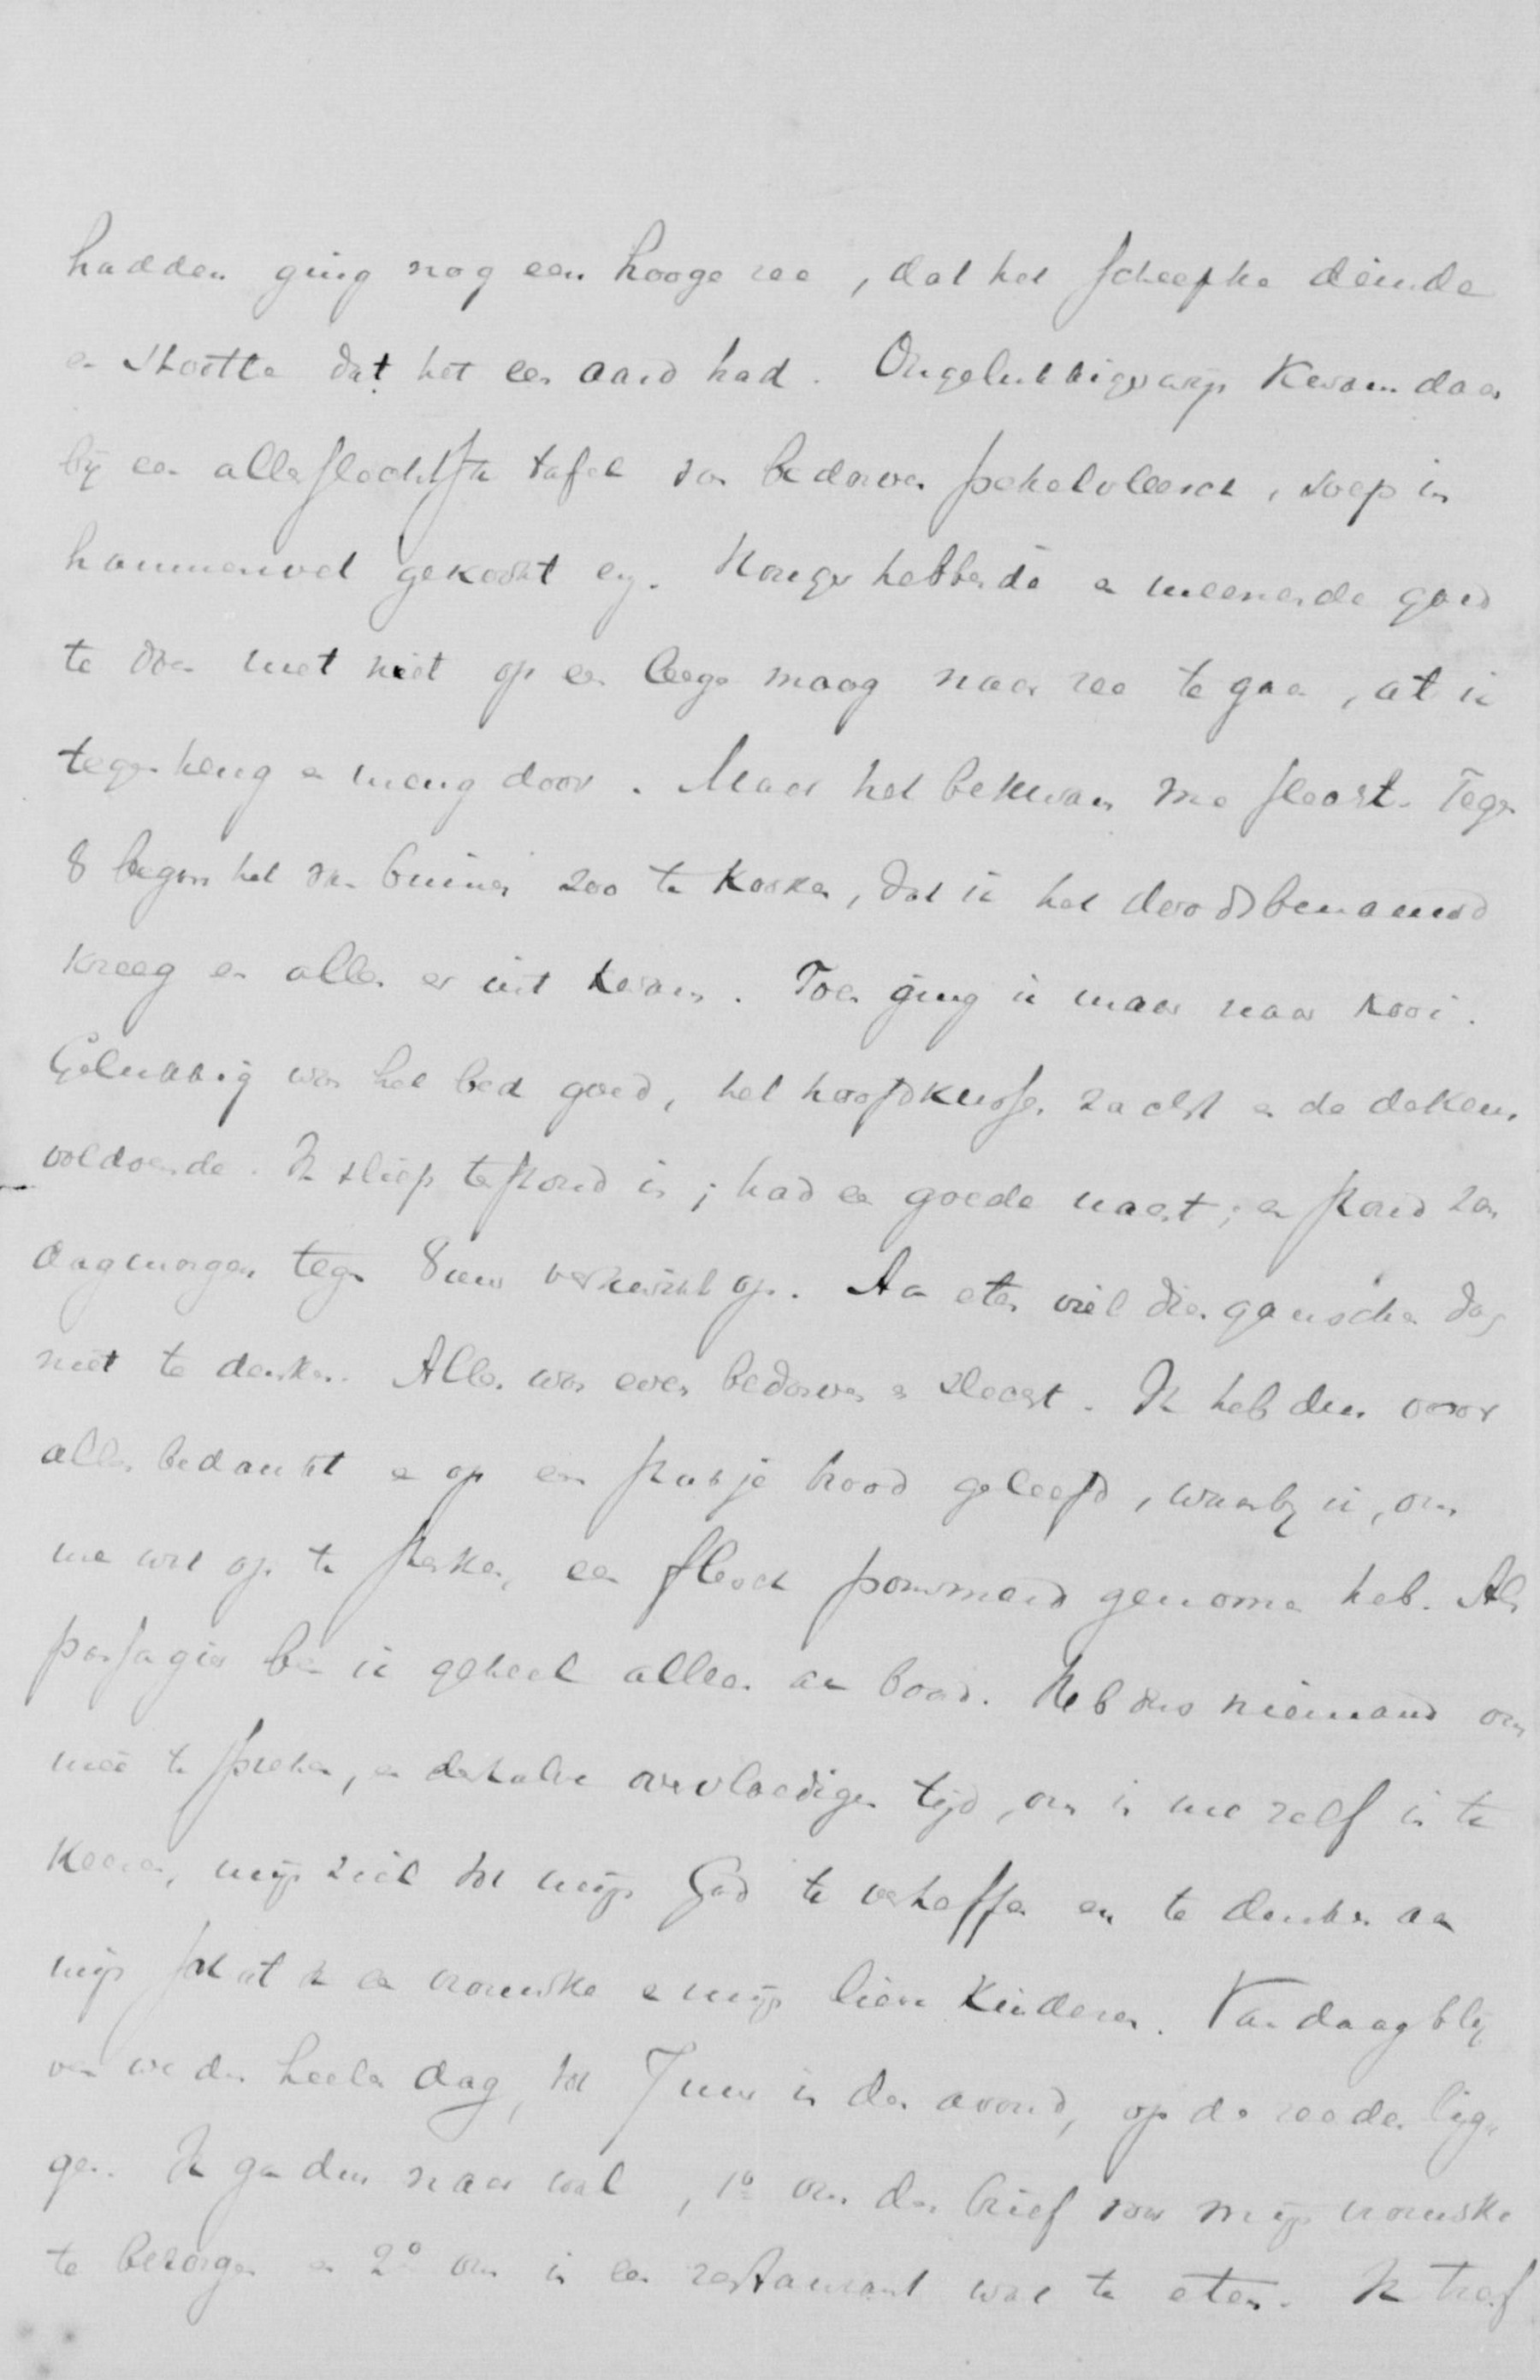 hadden ging nog een hooge zee, dat het scheepke deinde
en stootte dat het een aard had. Ongelukkigerwijs kwam daar
bij een allerslechtste tafel van bedorven pekelvleesch, soep in
gekookt enz. Honger hebbende en meenende goed
te doen met niet op een leege maag naar zee te gaan, at ik
tegen heug en meug door. Maar het bekwam me slecht. Tegen
8 begon het van binnen zoo te koken, dat ik het doodsbenauwd
kreeg en alles er uit kwam. Toen ging ik maar naar kooi.
Gelukkig was het bed goed, het hoofdkussen zacht en de dekens
voldoende. Ik sliep terstond in; had een goede nacht; en stond Zon
dagmorgen tegen 8 uur verkwikt op. Aan eten viel dien ganschen dag
niet te denken. Alles was even bedorven en slecht. Ik heb dus voor
alles bedankt en op een stukje brood geleefd, waarbij ik, om
me wat op te sterken, een flesch genomen heb. Als
passagier ben ik geheel alleen aan boord. Heb dus niemand om
meê te spreken, en derhalve overvloedigen tijd, om in me zelf in te
keeren, mijn ziel tot mijn God te verheffen en te denken aan
mijn schat van een vrouwke en mijn lieve kinderen. Vandaag blij
ven we den heelen dag, tot 7 uur in den avond, op de reede lig-
gen. Ik ga dus naar wal, 1º om den brief voor mijn vrouwke
te bezorgen en 2º om in een restaurant wat te eten. Ik tref